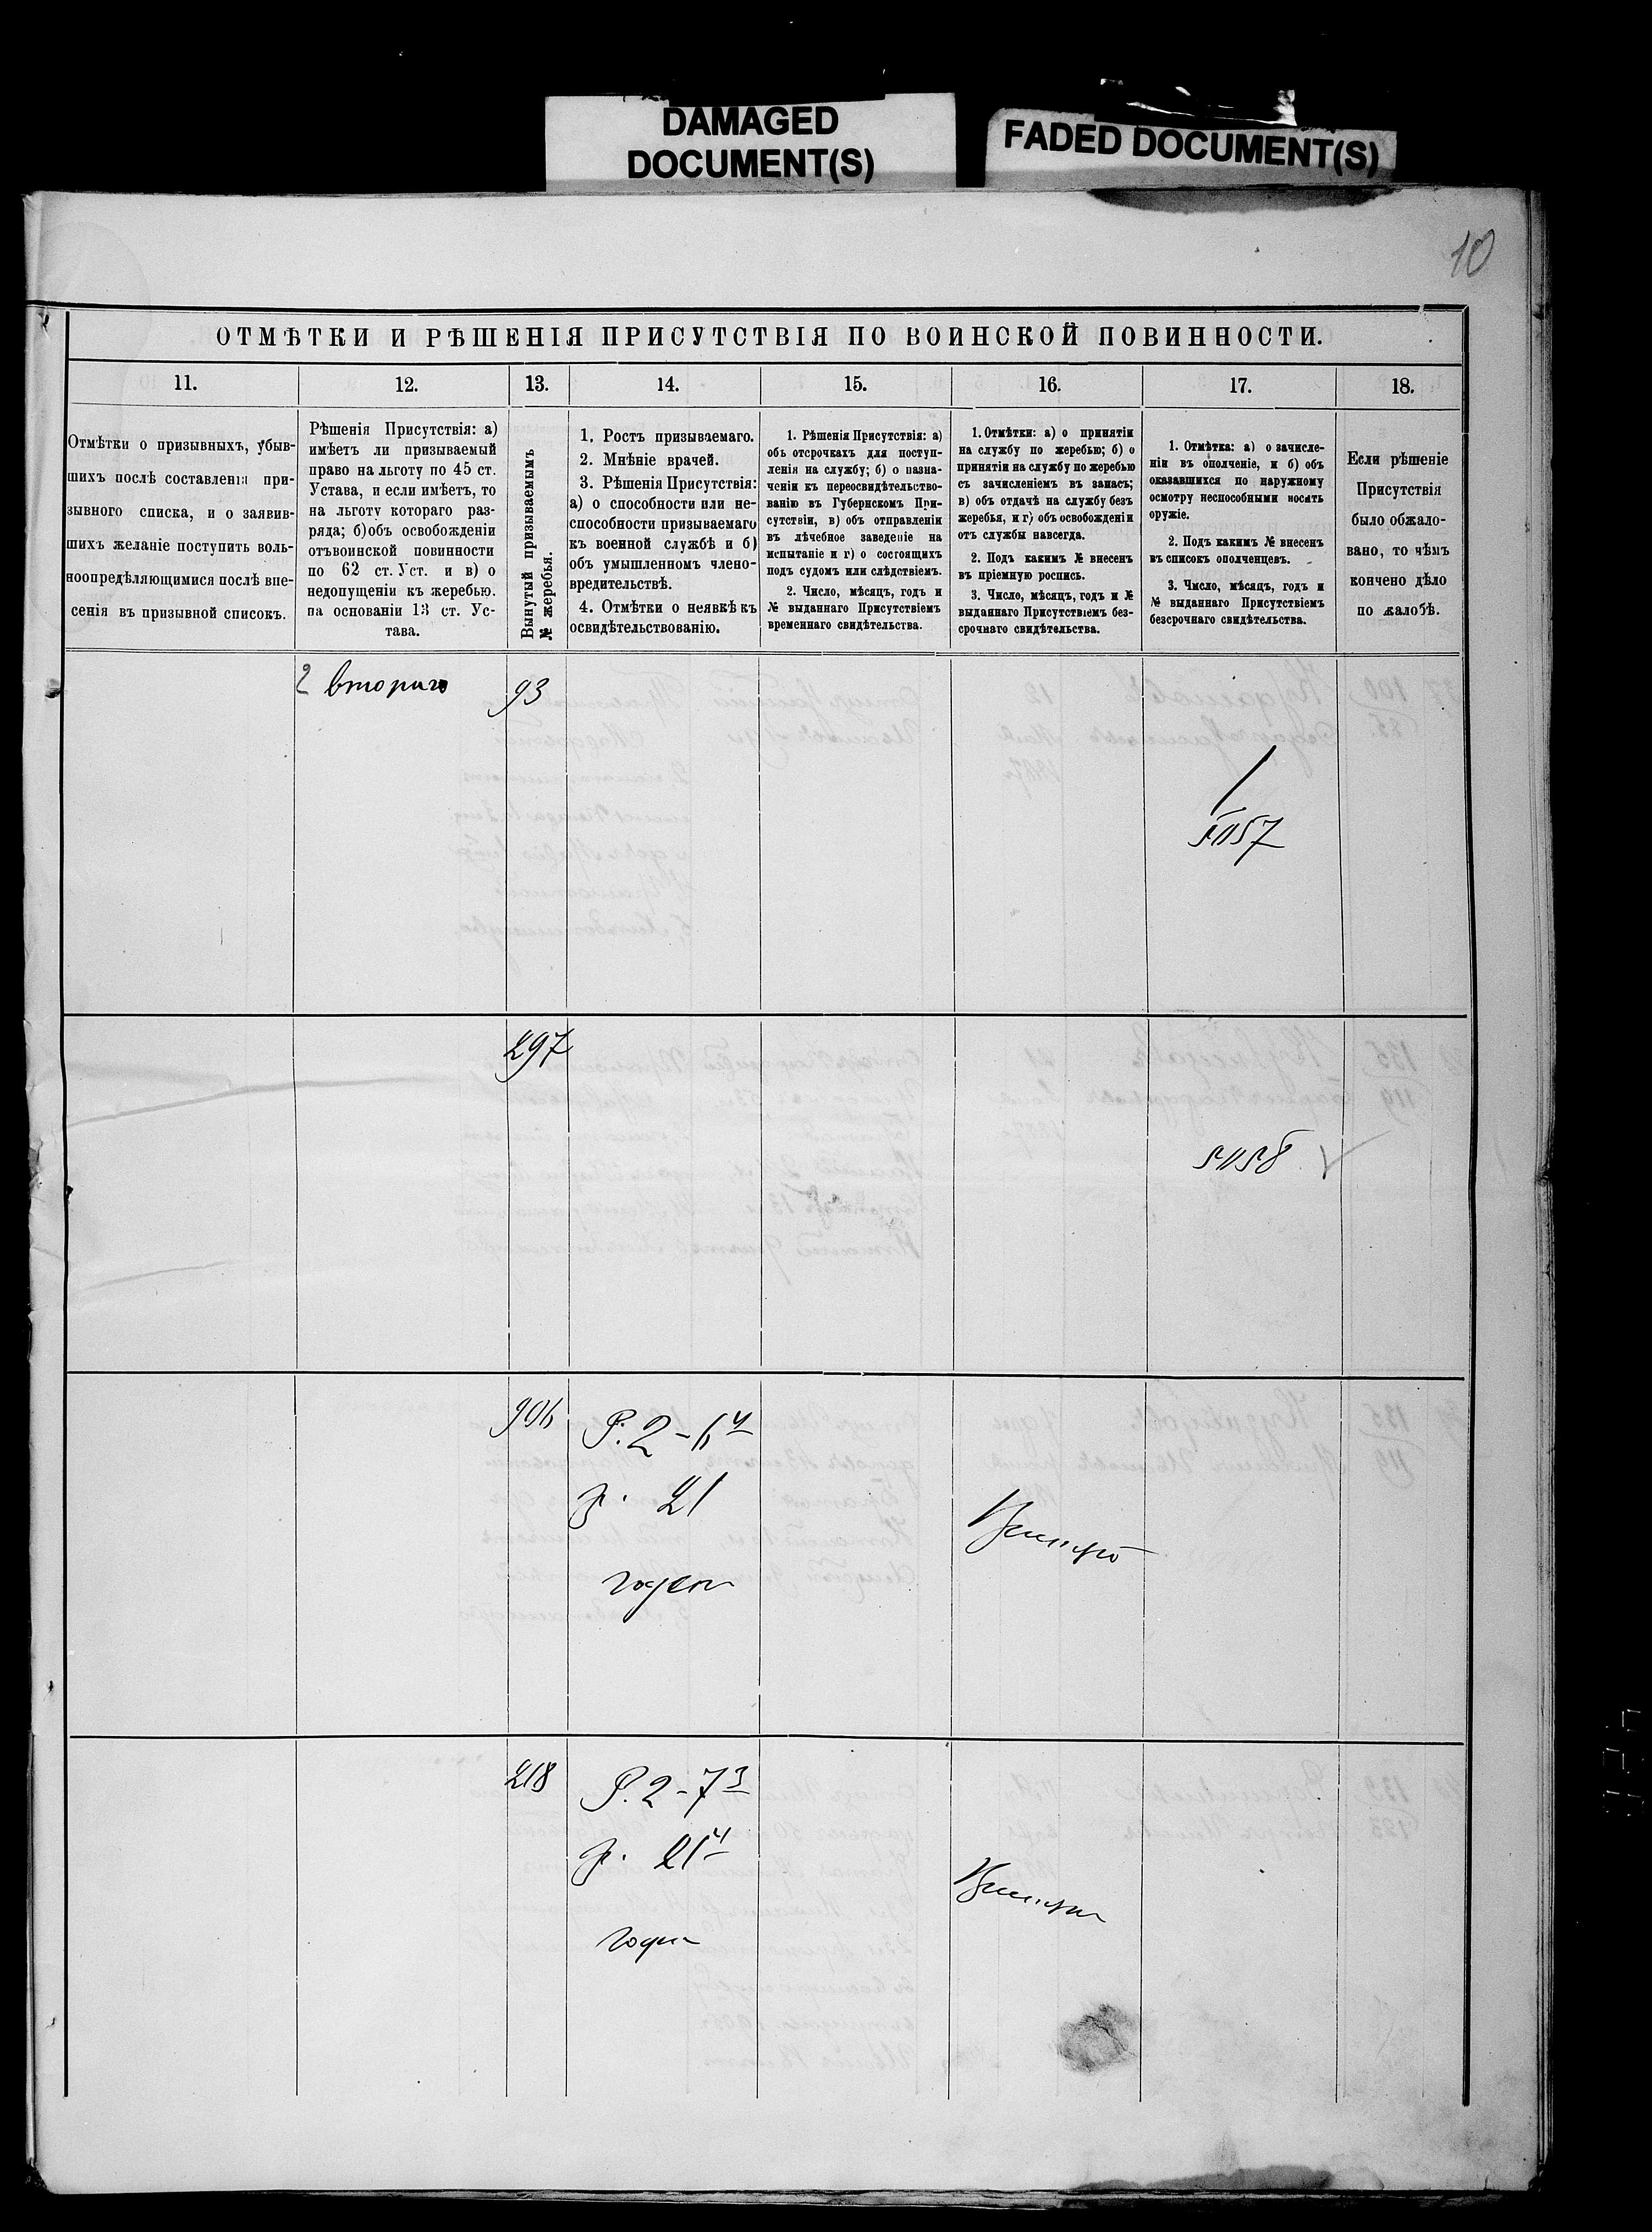 DAMAGED
DOCUMENT(S)
FADED DOCUMENT(S)
10
ОТМѢТКИ И РѢШЕНІЯ ПРИСУТСТВІЯ ПО ВОИНСКОЙ ПОВИННОСТИ.
11.
12.
13.
14.
15.
16.
17.
18.
Отмѣтки о призывныхъ, убыв-
шихъ послѣ составленія при-
зывного списка, и о заявив-
шихъ желаніе поступить воль-
ноопредѣляющимися послѣ вне-
сенія въ призывной списокъ.
Рѣшенія Присутствія: а)
имѣетъ ли призываемый
право на льготу по 45 ст.
Устава, и если имѣетъ, то
на льготу котораго раз-
ряда; б) объ освобожденіи
отъ воинской повинности
по 62 ст. Уст. и в) о
недопущеніи къ жеребью.
на основаніи 13 ст. Ус-
тава.
Вынутый призываемымъ
№ жеребья.
1. Ростъ призываемаго.
2. Мнѣніе врачей.
3. Рѣшенія Присутствія:
а) о способности или не-
способности призываемаго
къ военной службѣ и б)
объ умышленномъ члено-
вредительствѣ.
4. Отмѣтки о неявкѣ къ
освидѣтельствованію.
1. Рѣшенія Присутствія: а)
объ отсрочкахъ для поступ-
ленія на службу; б) о назна-
ченіи къ переосвидѣтельство-
ванію въ Губернскомъ При-
сутствіи, в) объ отправленіи
въ лѣчебное заведеніе на
испытаніе и г) о состоящихъ
подъ судомъ или слѣдствіемъ.
2. Число, мѣсяцъ, годъ и
№ выданнаго Присутствіемъ
временнаго свидѣтельства.
1. Отмѣтки: а) о принятіи
на службу по жеребью; б) о
принятіи на службу по жеребью
съ зачисленіемъ въ запасъ;
в) объ отдачѣ на службу безъ
жеребья, и г) объ освобожденіи
отъ службы навсегда.
2. Подъ какимъ № внесенъ
въ пріемную роспись.
3. Число, мѣсяцъ, годъ и №
выданнаго Присутствіемъ без-
срочнаго свидѣтельства.
1. Отмѣтка: а) о зачисле-
ніи въ ополченіе, и б) объ
оказавшихся по наружному
осмотру неспособными носить
оружіе.
2. Подъ какимъ № внесенъ
въ списокъ ополченцевъ.
3. Число, мѣсяцъ, годъ и
№ выданнаго Присутствіемъ
безсрочнаго свидѣтельства.
Если рѣшеніе
Присутствія
было обжало-
вано, то чѣмъ
кончено дѣло
по жалобѣ.
2 второго
93
297
906
Р. 2-6 4
г. 21
годен
218
Р. 2-7 3
г. 21 4
годен